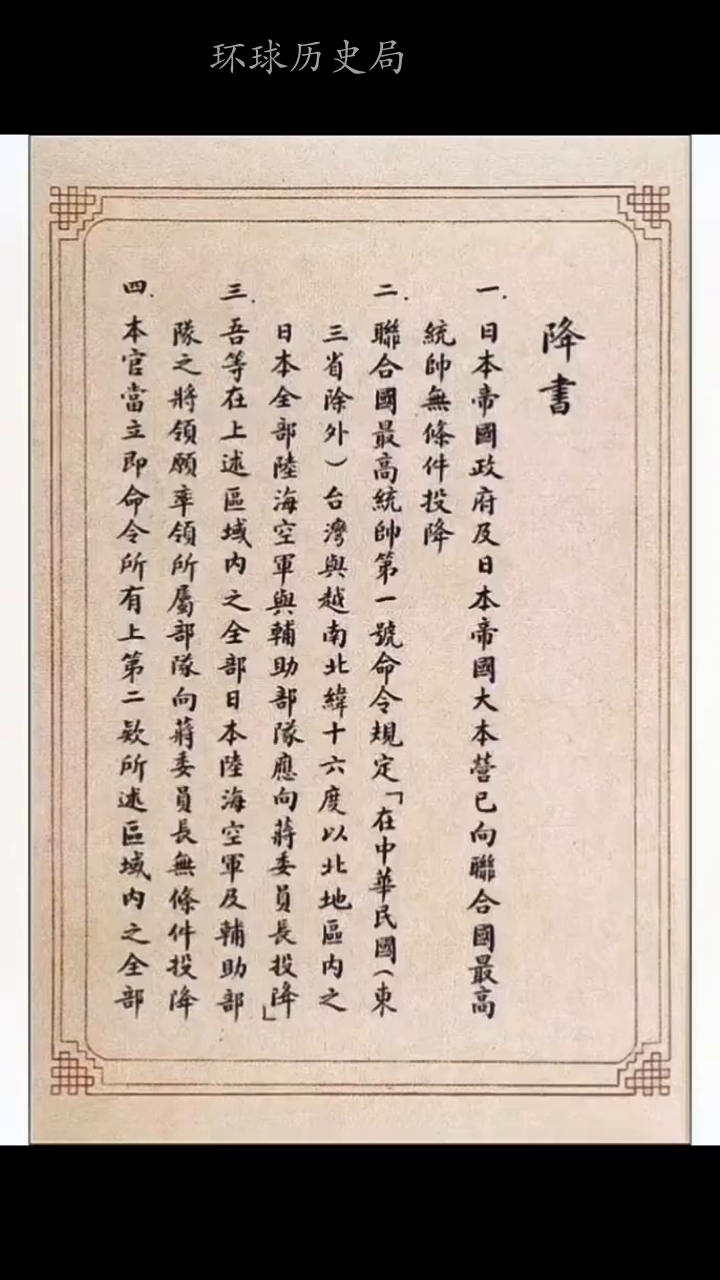 环球历史局
降書
一.日本帝國政府及日本帝國大本營已向聯合國最高
統帥無條件投降
二.聯合國最高統帥第一號命令規定「在中華民國(東
三省除外)台灣與越南北緯十六度以北地區內之
日本全部陸海空軍與輔助部隊應向蔣委員長投降」
三.吾等在上述區域內之全部日本陸海空軍及輔助部
隊之將領願率領所屬部隊向蔣委員長無條件投降
四.本官當立即命令所有上第二款所述區域內之全部